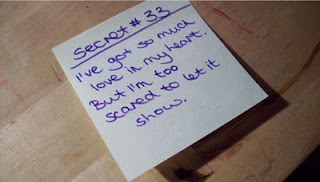 Secret # 33
I've got so much
love in my heart.
But I'm too
scared to let it
show.